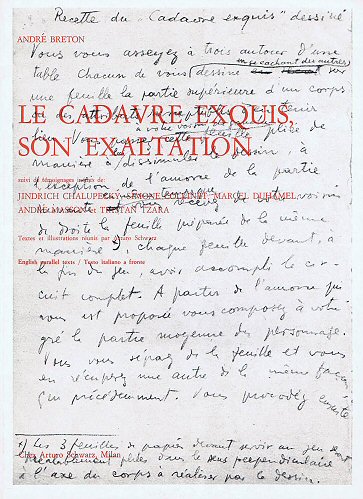 Recette du "Cadavre exquis" dessiné
ANDRÉ BRETON
Vous vous asseyez à trois autour d'une
table. Chacun de vous dessine
se cachant des autres
sur
une feuille la partie supérieure d'un corps
LE CADAVRE EXQUIS,
SON EXALTATION
lieu. Vous passez cette feuille, pliée de
à votre voisin
manière à dissimuler le dessin à
suivi de témoignages inédits de:
l'exception de l'amorce de la partie
JINDRICH CHALUPECKY, SIMONE COLLINET, MARCEL DUHAMEL
ANDRÉ MASSON et TRISTAN TZARA
de droite la feuille préparée de la même
Textes et illustrations réunis par Arturo Schwarz
manière), chaque feuille devant, à
English parallel texts / Testo italiano a fronte
la fin du jeu, avoir accompli le cir-
cuit complet. A partir de l'amorce qui
vous est proposée vous composez à votre
gré la partie moyenne du personnage.
Vous vous séparez de la feuille et vous
en recevez une autre de la même façon
que précédemment. Vous procédez ensuite
1) Les 3 feuilles de papier devant servir au jeu seront
préalablement pliées dans le sens perpendiculaire
Chez Arturo Schwarz, Milan
à l'axe du corps à réaliser par le dessin.